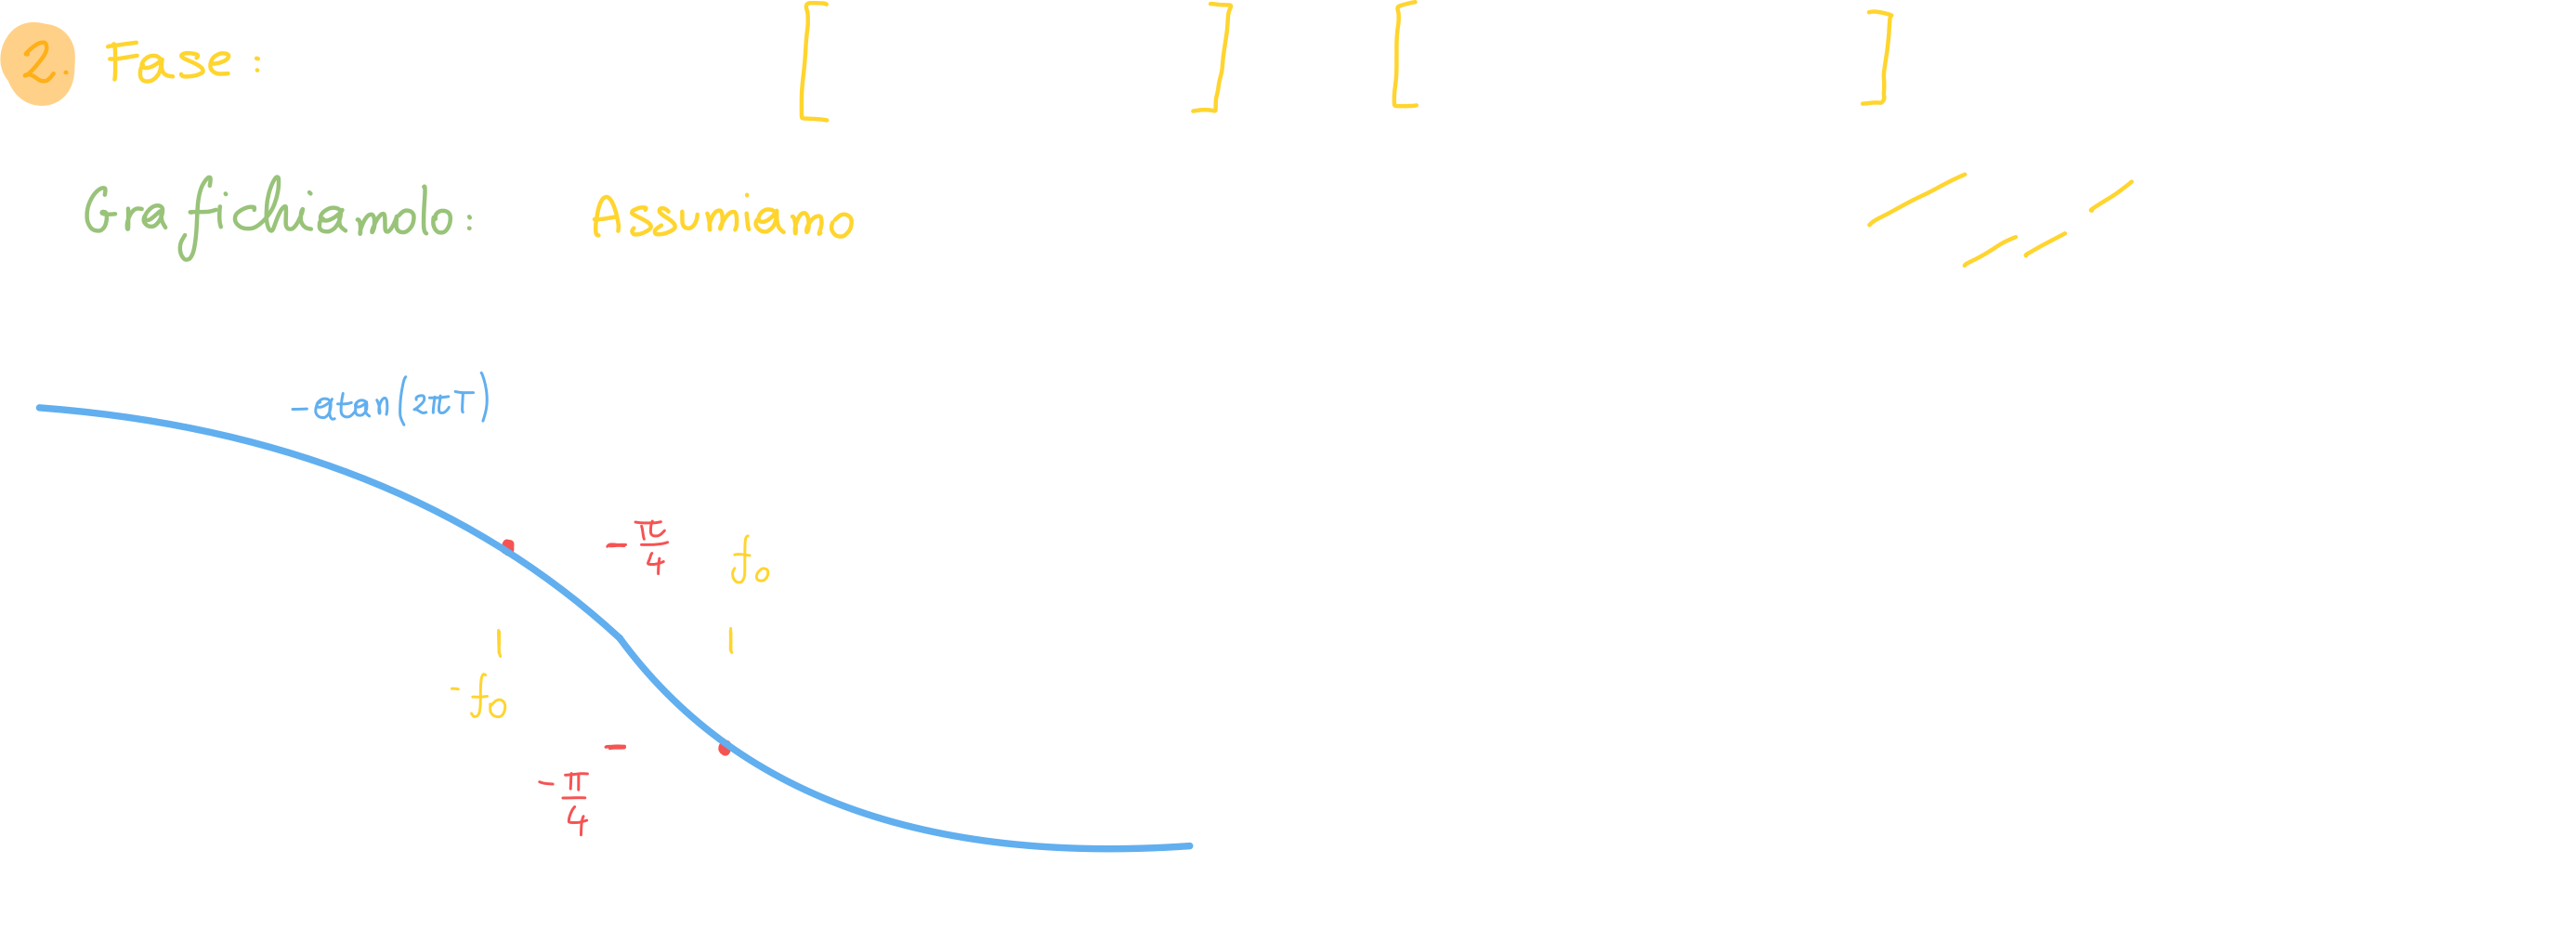 2. Fase : [ ] [ ]
Grafichiamolo: Assumiamo
-atan(2πT)
-π/4 f₀
-f₀
-π/4